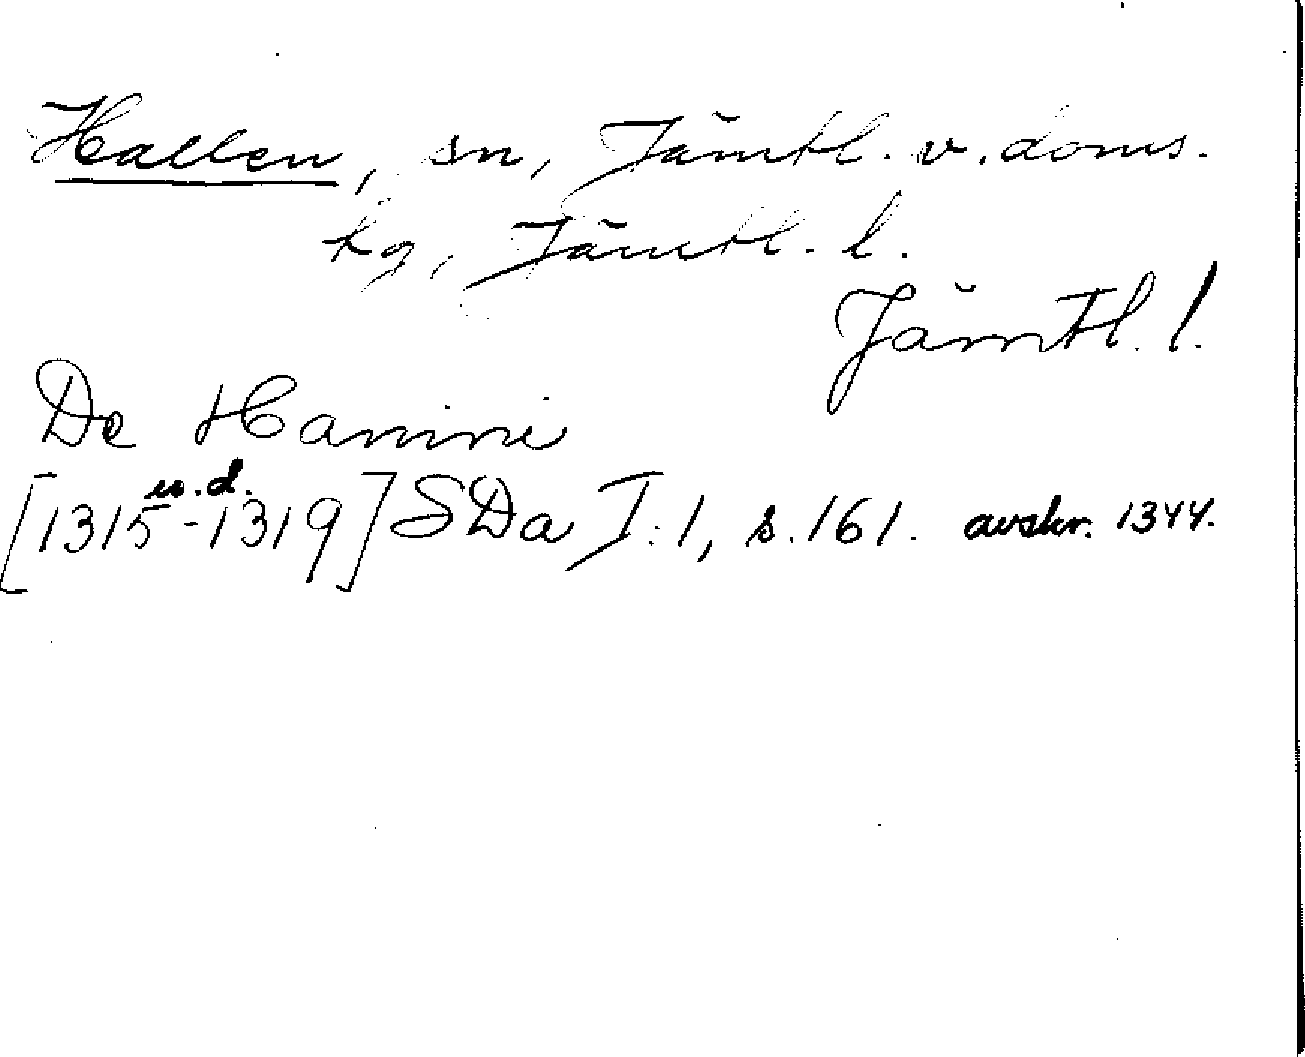 Hallen, sn, Jämtl. v. doms.
kg, Jämtl. l.
Jämtl. l.
De Hamine
u.d.
[1315-1319] SDa I:1, s. 161. avskr. 1344.